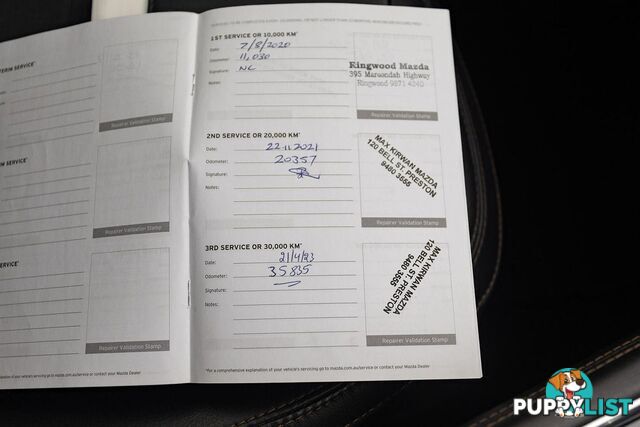 TERIM SERVICE*
Repairer Validation Stamp
M SERVICE*
Repairer Validation Stamp
SERVICE*
Repairer Validation Stamp
1ST SERVICE OR 10,000 KM*
Date: 7/8/2020
Odometer: 11,030
Signature: NC
Notes:
Ringwood Mazda
395 Maroondah Highway
Ringwood 9871 4240
Repairer Validation Stamp
2ND SERVICE OR 20,000 KM*
Date: 22.11.2021
Odometer: 20357
Signature:
Notes:
MAX KIRWAN MAZDA
120 BELL ST. PRESTON
9480 3555
Repairer Validation Stamp
3RD SERVICE OR 30,000 KM*
Date: 21/4/23
Odometer: 35835
Signature:
Notes:
MAX KIRWAN MAZDA
120 BELL ST. PRESTON
9480 3555
Repairer Validation Stamp
*For a comprehensive explanation of your vehicle's servicing go to mazda.com.au/service or contact your Mazda Dealer
PUPPYLIST